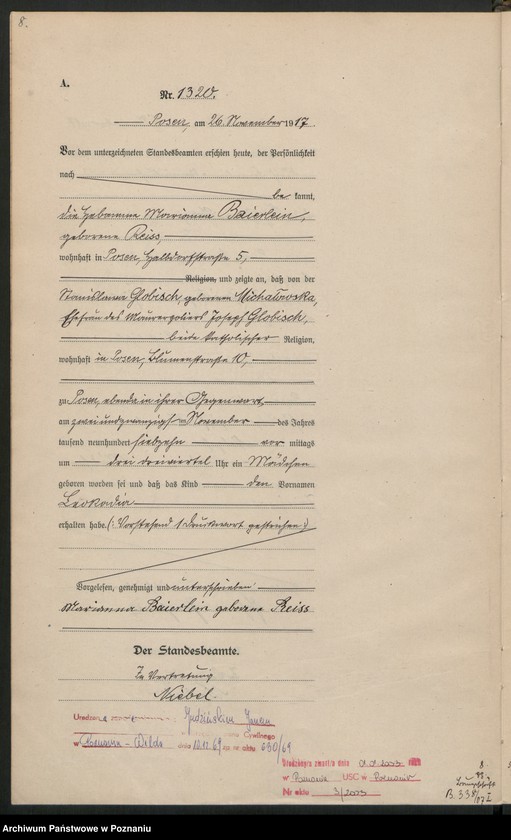 8.
A.
Nr. 1320.
Posen, am 26. November 1917.
Vor dem unterzeichneten Standesbeamten erschien heute, der Persönlichkeit
nach
be kannt,
die Hebamme Marianna Baierlein,
geborene Reiss,
wohnhaft in Posen, Halldorfstraße 5,
Religion, und zeigte an, daß von der
Stanislawa Globisch, geborenen Michałowska,
Ehefrau des Maurerpoliers Joseph Globisch,
beide katholischer Religion,
wohnhaft in Posen, Blumenstraße 10,
zu Posen, ebenda in ihrer Gegenwart,
am zweiundzwanzigsten November des Jahres
tausend neunhundert siebzehn vor mittags
um drei dreiviertel Uhr ein Mädchen
geboren worden sei und daß das Kind den Vornamen
Leokadia
erhalten habe. (: Vorstehend 1 Druckwort gestrichen :)
Vorgelesen, genehmigt und unterschrieben
Marianna Baierlein geborene Reiss
Der Standesbeamte.
In Vertretung
Niebel.
Cywilnego
w Poznań - Wilda dnia 13.12.69 za nr aktu 630/69
zmarł/a dnia
w Poznaniu USC w Poznaniu
Nr aktu 3/2003
8.
B. 338/
Archiwum Państwowe w Poznaniu